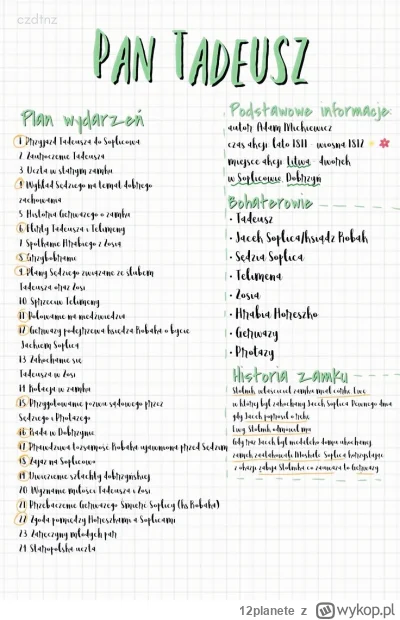 czdtnz
PAN TADEUSZ
Plan wydarzeń
1 Przyjazd Tadeusza do Soplicowa
2 Zauroczenie Tadeusza
3 Uczta w starym zamku
4 Wykład Sędziego na temat dobrego
zachowania
5 Historia Gerwazego o zamku
6 Flirty Tadeusza i Telimeny
7 Spotkanie Hrabiego z Zosią
8 Grzybobranie
9 Plany Sędziego związane ze ślubem
Tadeusza oraz Zosi
10 Sprzeciw Telimeny
11 Polowanie na niedźwiedzia
12 Gerwazy podejrzewa księdza Robaka o bycie
Jackiem Soplicą
13 Zakochanie się
Tadeusza w Zosi
14 Kolacja w zamku
15 Przygotowanie pozwu sądowego przez
Sędziego i Protazego
16 Rada w Dobrzynie
17 Prawdziwa tożsamość Robaka ujawniona przed Sędzim
18 Zajazd na Soplicowo
19 Uwięzienie szlachty dobrzyńskiej
20 Wyznanie miłości Tadeusza i Zosi
21 Przebaczenie Gerwazego Śmierć Soplicy (ks Robaka)
22 Zgoda pomiędzy Horeszkami a Soplicami
23 Zaręczyny młodych par
24 Staropolska uczta
Podstawowe informacje:
autor Adam Mickiewicz
czas akcji lato 1811 - wiosna 1812
miejsce akcji Litwa - dworek
w Soplicowie, Dobrzyń
Bohaterowie
• Tadeusz
• Jacek Soplica/ksiądz Robak
• Sędzia Soplica
• Telimena
• Zosia
• Hrabia Horeszko
• Gerwazy
• Protazy
Historia zamku
Stolnik właściciel zamku miał córkę Ewę
w której był zakochany Jacek Soplica Pewnego dnia
gdy Jacek poprosił o rękę
Ewy Stolnik odmówił mu
Gdy raz Jacek był niedaleko domu ukochanej
zamek zaatakowali Moskale Soplica korzystając
z okazji zabija Stolnika co zauważa to Gerwazy
12planete z wykop.pl